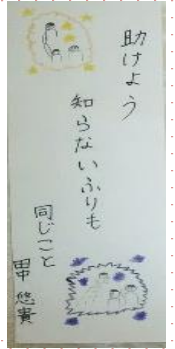 助けよう
知らないふりも
同じこと
田中 悠貴